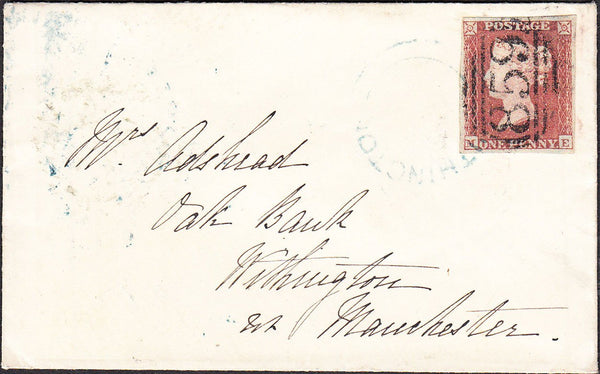 POSTAGE
859
M ONE PENNY E
Mrs Adshead
Oak Bank
Withington
nr Manchester.